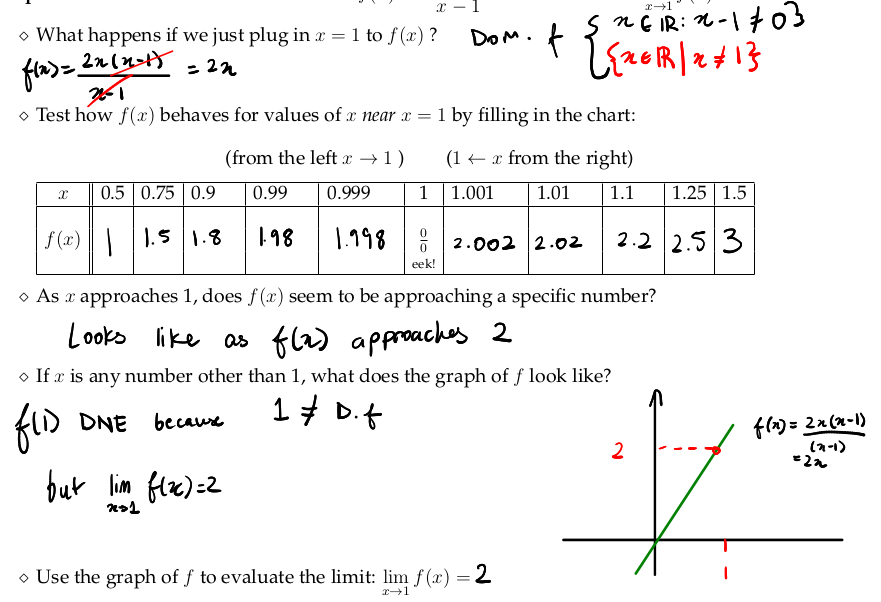 x − 1
x→1
⋄ What happens if we just plug in x = 1 to f(x) ? Dom. f { x ∈ ℝ: x-1 ≠ 0}
{x ∈ ℝ | x ≠ 1}
f(x) = 2x(x-1) / x-1 = 2x
⋄ Test how f(x) behaves for values of x near x = 1 by filling in the chart:
(from the left x → 1 ) (1 ← x from the right)
x 0.5 0.75 0.9 0.99 0.999 1 1.001 1.01 1.1 1.25 1.5
f(x) 1 1.5 1.8 1.98 1.998 0/0 2.002 2.02 2.2 2.5 3
eek!
⋄ As x approaches 1, does f(x) seem to be approaching a specific number?
Looks like as f(x) approaches 2
⋄ If x is any number other than 1, what does the graph of f look like?
f(1) DNE because 1 ≠ D.f
f(x) = 2x(x-1) / (x-1)
= 2x
2
but lim x→1 f(x)=2
1
⋄ Use the graph of f to evaluate the limit: lim x→1 f(x) = 2